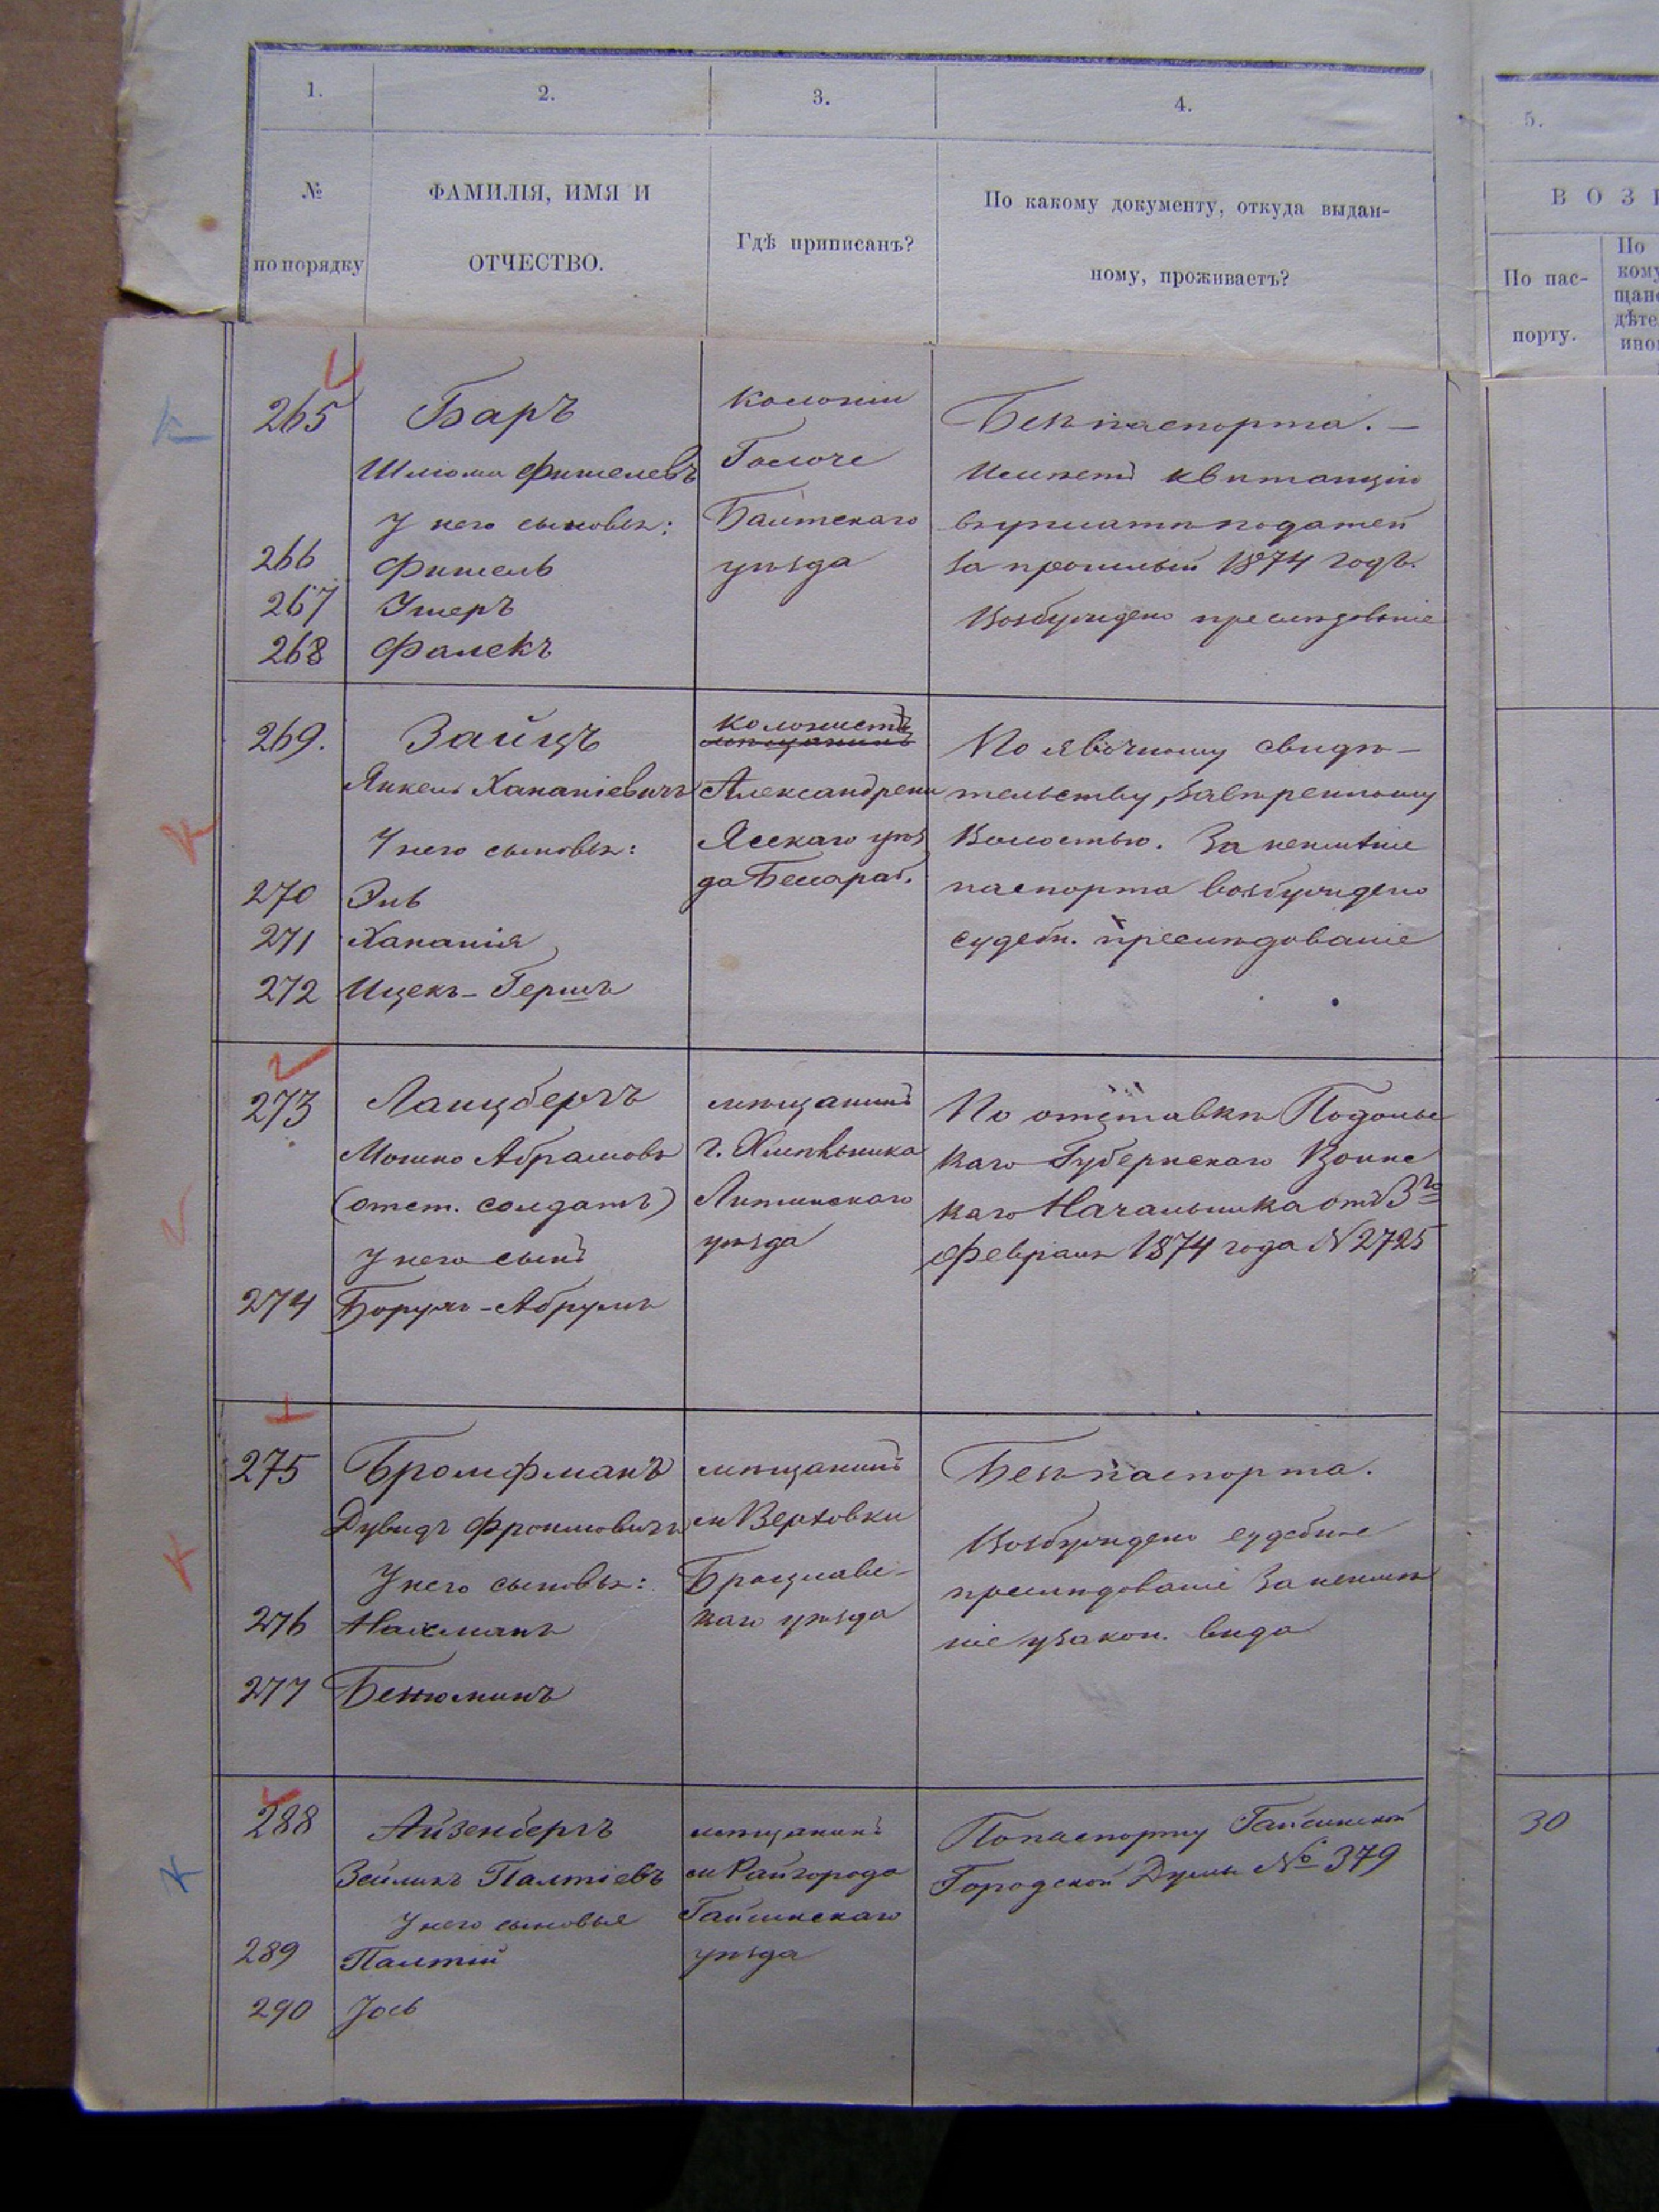 1. 2. 3. 4. 5.
№ по порядку
ФАМИЛІЯ, ИМЯ И
ОТЧЕСТВО.
Гдѣ приписанъ?
По какому документу, откуда выдан-
ному, проживаетъ?
В О З
По пас-
порту.
По
кому
щан
дѣте
ино
265
Баръ
Шлиома Фишелевъ
У него сыновья:
266 Фишель
267 Ушеръ
268 Фалекъ
Колоніи
Голоче
Балтскаго
уѣзда
Безъ паспорта. –
Имѣетъ квитанцію
въ уплатѣ податей
за прошлый 1874 годъ.
Возбуждено преслѣдованіе
269.
Зайцъ
Янкель Хананіевичъ
У него сыновья:
270
271 Ханания
272 Ицекъ-Гершъ
колонистъ
мѣщанинъ
Александрени
Ясскаго уѣз
да Бессараб.
По явочному свидѣ–
тельству, завѣренному
Волостью. За неимѣніе
паспорта возбуждено
судебн. преслѣдованіе
273
Ланцбергъ
Мошко Абрамовъ
(отст. солдатъ)
У него сынъ
274 Борухъ-Абрумъ
мѣщанинъ
г. Хмѣльника
Литинскаго
уѣзда
По отставкѣ Подольс
каго Губернскаго Воинс
каго Начальника отъ 3го
Февраля 1874 года № 2725
275
Бромфманъ
Дувидъ Фроимовичъ
У него сыновья:
276 Нахманъ
277 Бенюминъ
мѣщанинъ
м Верховки
Брацлавс-
каго уѣзда
Безъ паспорта.
Возбуждено судебное
преслѣдованіе за неимѣ
ніе узакон. вида
288
Айзенбергъ
Зейликъ Палтіевъ
У него сыновья
289 Палтій
290 Іось
мѣщанинъ
м Райгорода
Гайсинскаго
уѣзда
По паспорту Гайсинской
Городской Думы № 379
30